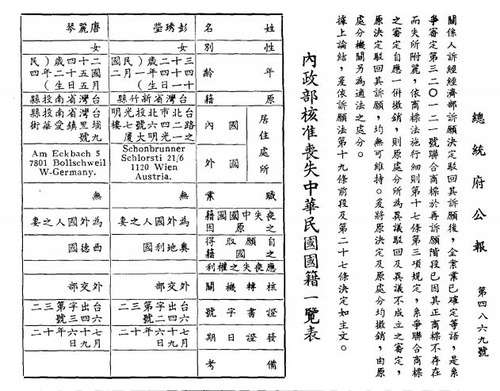 總統府公報
第四八六九號
關係人訴經經濟部訴願決定駁回其訴願後，全案業已確定等語，是系
爭審定第三二〇一二一號聯合商標於再訴願階段已因其正商標不存在
而失所附麗，依商標法施行細則第十七條第三項規定，系爭聯合商標
之審定自應一併撤銷，則原處分所為異議駁回及異議不成立之審定，
原決定駁回其訴願，均無可維持。爰將原決定及原處分均撤銷，由原
處分機關另為適法之處分。
據上論結，爰依訴願法第十九條前段及第二十七條決定如主文。
內政部核准喪失中華民國國籍一覽表
姓名
性別
年齡
原籍
居住處所
國內
國外
職業
喪失中國國籍之原因
自願取得之國籍
應喪失之權利
核轉機關
證書字號
發證日期
備考
彭琇瑩
女
三十二歲（民國
四十四年一月二
十一日生）
台灣省新竹縣
路二四六號七樓
之一光明大廈
Schonbrunner
Schlorsti 21/6
1120 Wien
Austria.
無
為外國人之妻
奧地利國
外交部
台出字第三二
六四二號
六十七年十二
月九日
唐麗琴
女
二十四歲（民
國五十二年四
月五日生）
台灣省南投縣
台灣省南投縣
九號
Am Eckbach 5
7801 Bollschweil
W-Germany.
無
為外國人之妻
西德國
外交部
台出字第三二
六四三號
六十七年十二
月九日